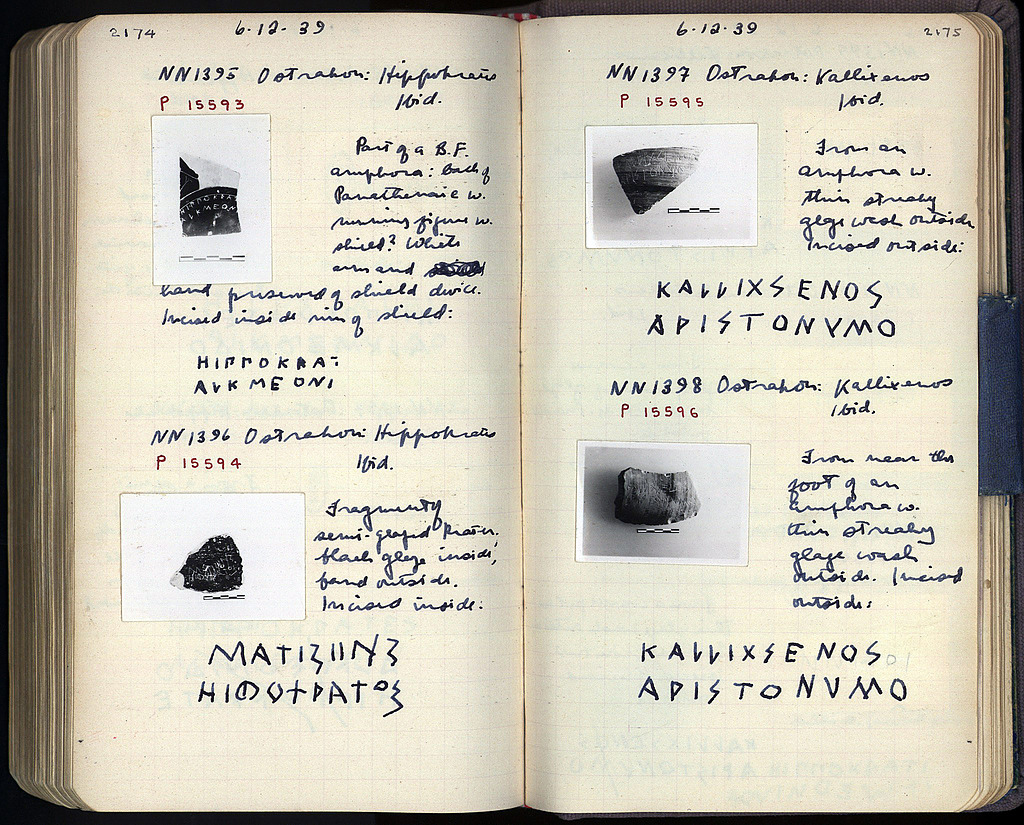 2174
6-12-39
NN1395 Ostrakon: Hippokrates
Ibid.
P 15593
Part of a B.F.
amphora: back of
Panathenaic w.
running figure w.
shield? White
arm and
hand preserved of shield device.
Incised inside rim of shield:
HIPPOKRAT
ΑLΚΜΕΟΝΙ
NN1396 Ostrakon: Hippokrates
Ibid.
P 15594
Fragment of
semi-glazed krater,
black glaze inside,
band outside.
Incised inside:
2175
6-12-39
NN1397 Ostrakon: Kallixenos
Ibid.
P 15595
From an
amphora w.
thin streaky
glaze wash outside
Incised outside:
ΚΑLLΙΧSΕΝΟS
ΑΡΙSΤΟΝVΜΟ
NN1398 Ostrakon: Kallixenos
Ibid.
P 15596
From near the
foot of an
amphora w.
thin streaky
glaze wash
outside. Incised
outside:
ΚΑLLΙΧSΕΝΟS
ΑΡΙSΤΟΝVΜΟ